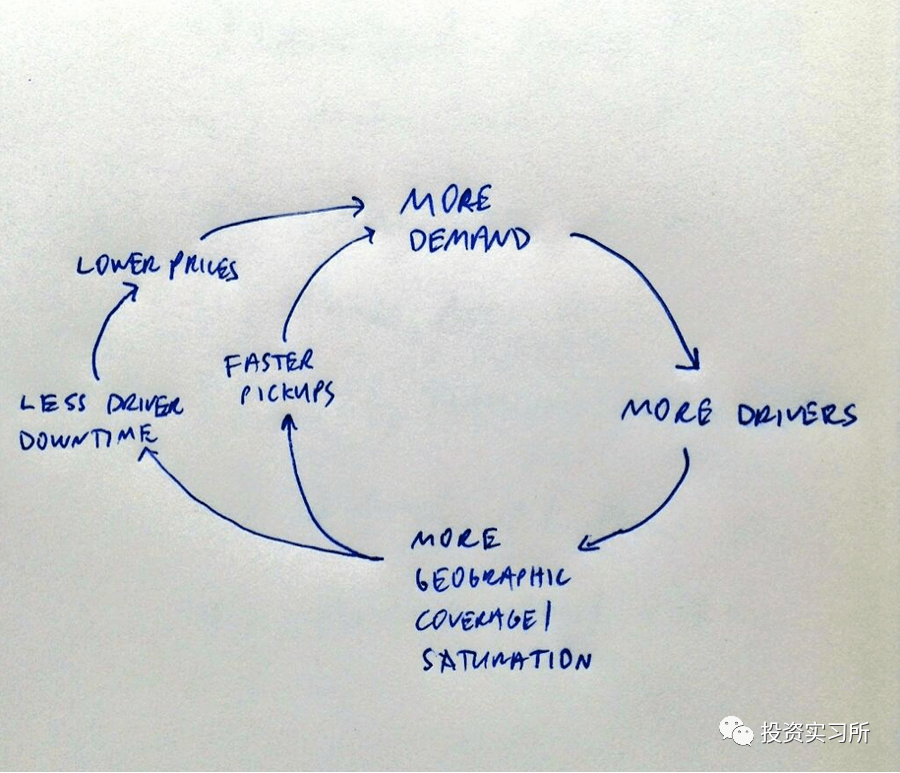 MORE
DEMAND
LOWER PRICES
FASTER
PICKUPS
LESS DRIVER
DOWNTIME
MORE DRIVERS
MORE
GEOGRAPHIC
COVERAGE/
SATURATION
投资实习所